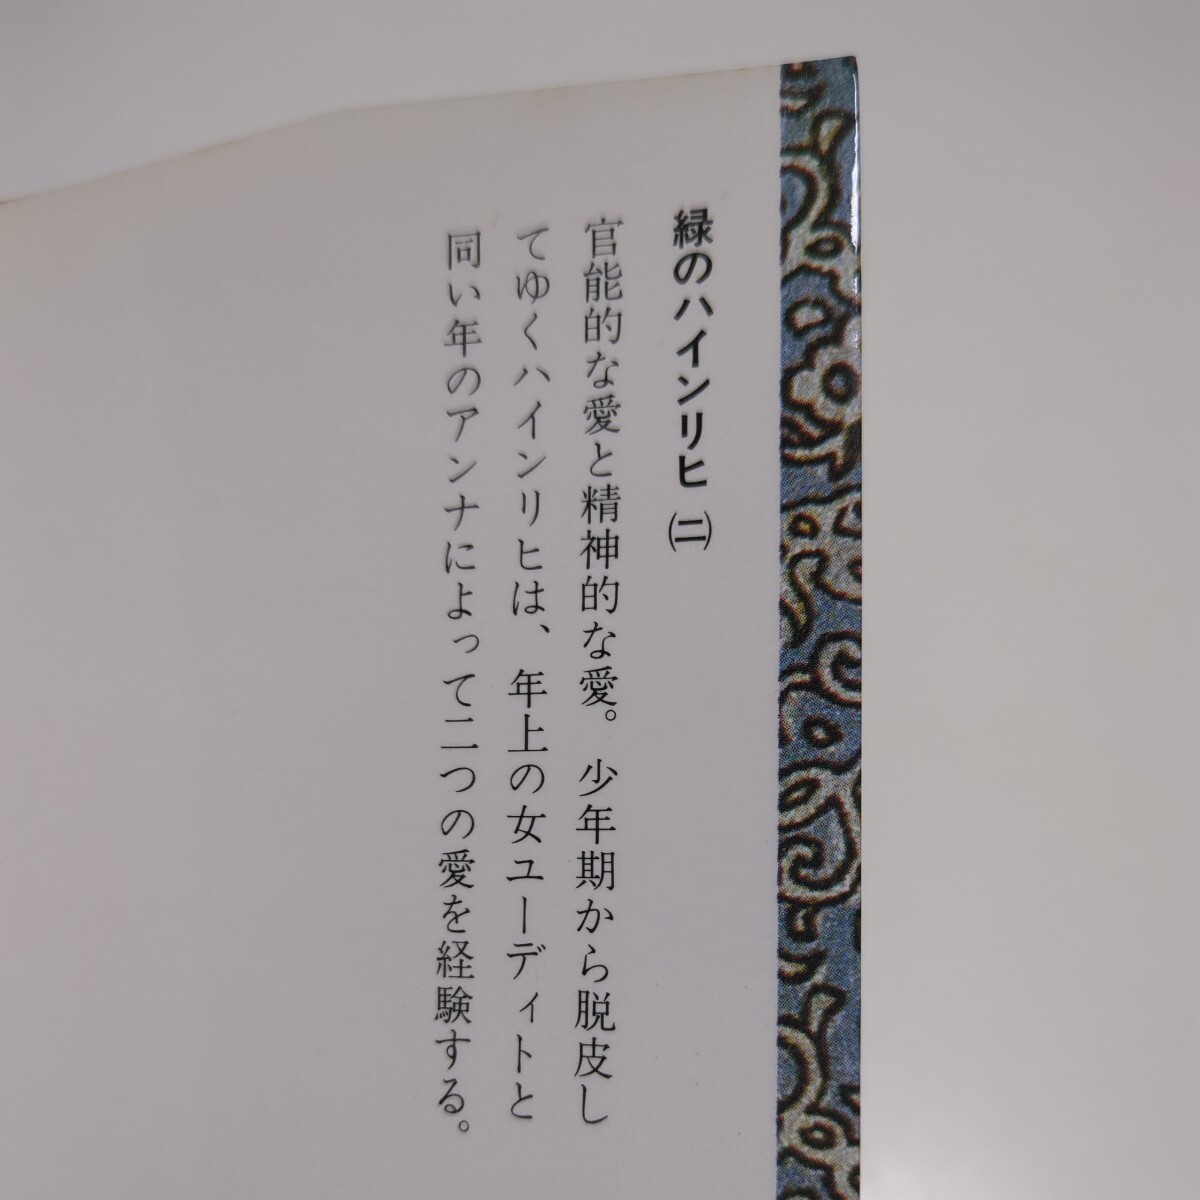 緑のハインリヒ㈡
官能的な愛と精神的な愛。少年期から脱皮し
てゆくハインリヒは、年上の女ユーディトと
同い年のアンナによって二つの愛を経験する。